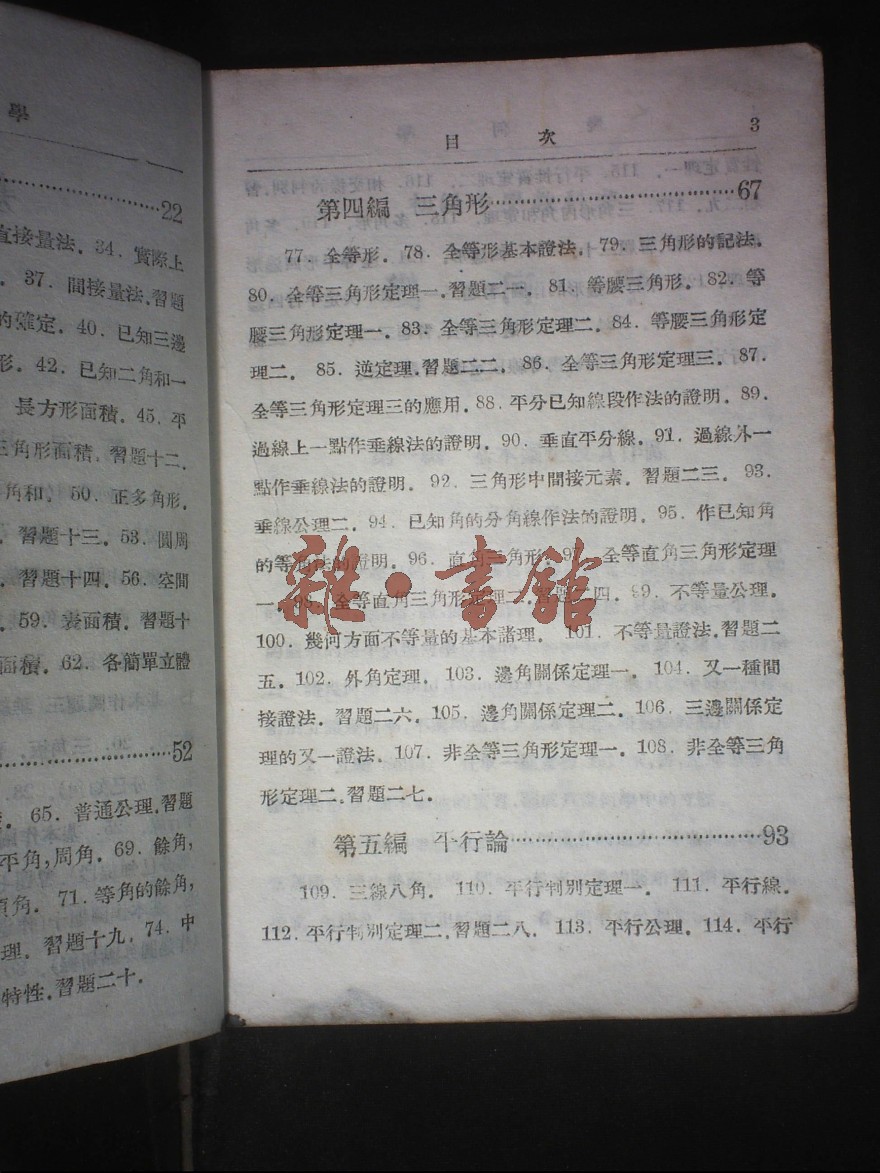 學
22
直接量法．34．實際上
．37．間接量法．習題
的確定．40．已知三邊
形．42．已知二角和一
長方形面積．45．平
三角形面積．習題十二．
角和．50．正多角形．
．習題十三．53．圓周
．習題十四．56．空間
．59．表面積．習題十
面積．62．各簡單立體
52
．65．普通公理．習題
平角，周角．69．餘角，
頂角．71．等角的餘角，
理．習題十九．74．中
特性．習題二十．
目次 3
第四編 三角形……67
77．全等形．78．全等形基本證法．79．三角形的記法．
80．全等三角形定理一．習題二一．81．等腰三角形．82．等
腰三角形定理一．83．全等三角形定理二．84．等腰三角形定
理二．85．逆定理．習題二二．86．全等三角形定理三．87．
全等三角形定理三的應用．88．平分已知線段作法的證明．89．
過線上一點作垂線法的證明．90．垂直平分線．91．過線外一
點作垂線法的證明．92．三角形中間接元素．習題二三．93．
垂線公理二．94．已知角的分角線作法的證明．95．作已知角
的等角法的證明．96．直角三角形．97．全等直角三角形定理
一．98．全等直角三角形定理二．習題二四．99．不等量公理．
100．幾何方面不等量的基本諸理．101．不等量證法．習題二
五．102．外角定理．103．邊角關係定理一．104．又一種間
接證法．習題二六．105．邊角關係定理二．106．三邊關係定
理的又一證法．107．非全等三角形定理一．108．非全等三角
形定理二．習題二七．
第五編 平行論……93
109．三線八角．110．平行判別定理一．111．平行線．
112．平行判別定理二．習題二八．113．平行公理．114．平行
雜·書館